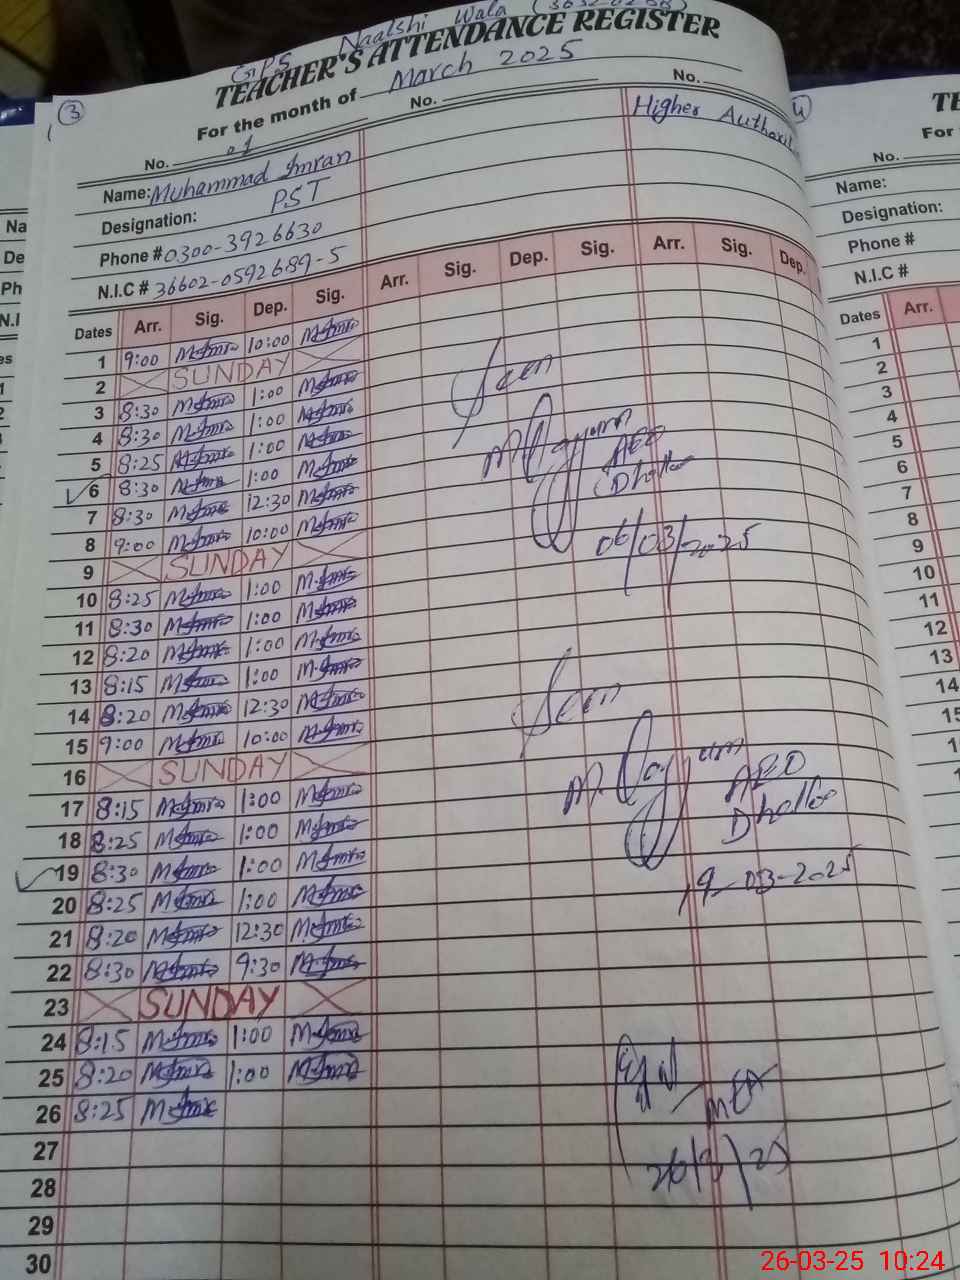 GPS Naalshi Wala
TEACHER'S ATTENDANCE REGISTER
For the month of March 2025
3
No. 01 No. No.
Name: Muhammad Imran Higher
Designation: PST
Phone # 0300-3926630
N.I.C # 36602-0592689-5
Dates Arr. Sig. Dep. Sig. Arr. Sig. Dep. Sig. Arr. Sig. Dep.
1 9:00 M-Imran 10:00 M-Imran
2 SUNDAY
3 8:30 M-Imran 1:00 M-Imran
4 8:30 M-Imran 1:00 M-Imran
5 8:25 M-Imran 1:00 M-Imran
6 8:30 M-Imran 1:00 M-Imran
7 8:30 M-Imran 12:30 M-Imran
8 9:00 M-Imran 10:00 M-Imran
9 SUNDAY
10 8:25 M-Imran 1:00 M-Imran
11 8:30 M-Imran 1:00 M-Imran
12 8:20 M-Imran 1:00 M-Imran
13 8:15 M-Imran 1:00 M-Imran
14 8:20 M-Imran 12:30 M-Imran
15 9:00 M-Imran 10:00 M-Imran
16 SUNDAY
17 8:15 M-Imran 1:00 M-Imran
18 8:25 M-Imran 1:00 M-Imran
19 8:30 M-Imran 1:00 M-Imran
20 8:25 M-Imran 1:00 M-Imran
21 8:20 M-Imran 12:30 M-Imran
22 8:30 M-Imran 9:30 M-Imran
23 SUNDAY
24 8:15 M-Imran 1:00 M-Imran
25 8:20 M-Imran 1:00 M-Imran
26 8:25 M-Imran
27
28
29
30
Seen
AEO
Dhalloo
06/03/2025
Seen
AEO
Dhalloo
19-03-2025
MEA
26/3/25
4
For
No.
Name:
Designation:
Phone #
N.I.C #
Dates Arr.
1
2
3
4
5
6
7
8
9
10
11
12
13
14
15
26-03-25 10:24